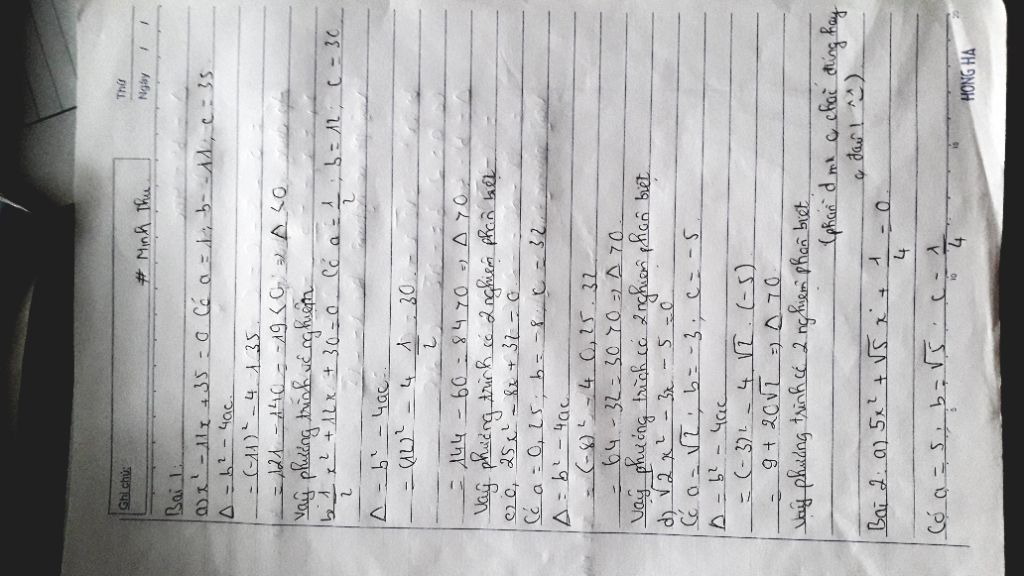 Ghi chú:
# Minh Thu
Thứ
Ngày / /
Bài 1:
a) x² - 11x + 35 = 0 Có a = 1; b = -11; c = 35.
Δ = b² - 4ac
= (-11)² - 4.1.35
= 121 - 140 = -19 < 0 => Δ < 0
Vậy phương trình vô nghiệm
b. 1/2 x² + 12x + 30 = 0 Có a = 1/2; b = 12; c = 30
Δ = b² - 4ac
= (12)² - 4 1/2 . 30
= 144 - 60 = 84 > 0 => Δ > 0.
Vậy phương trình có 2 nghiệm phân biệt
c) 0,25x² - 8x + 32 = 0
Có a = 0,25; b = -8; c = 32.
Δ = b² - 4ac
= (-8)² - 4 0,25 . 32
= 64 - 32 = 30 > 0 => Δ > 0
Vậy phương trình có 2 nghiệm phân biệt
d) √2 x² - 3x - 5 = 0
Có a = √2; b = -3; c = -5
Δ = b² - 4ac
= (-3)² - 4 √2 . (-5)
= 9 + 20√2 => Δ > 0
Vậy phương trình có 2 nghiệm phân biệt
(phần d mk chắc đúng hay
đâu! ^^)
Bài 2: a) 5x² + √5 x + 1/4 = 0
Có a = 5; b = √5; c = 1/4
5 10 10 20
HONG HA